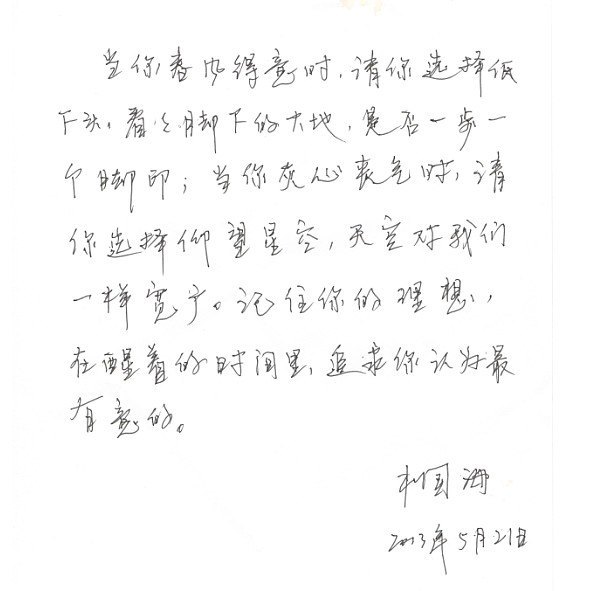 当你春风得意时，请你选择低
下头，看看脚下的大地，是否一步一
个脚印；当你灰心丧气时，请
你选择仰望星空，天空对我们
一样宽广。记住你的理想，
在醒着的时间里，追求你认为最
有意的。
国海
2013年5月21日